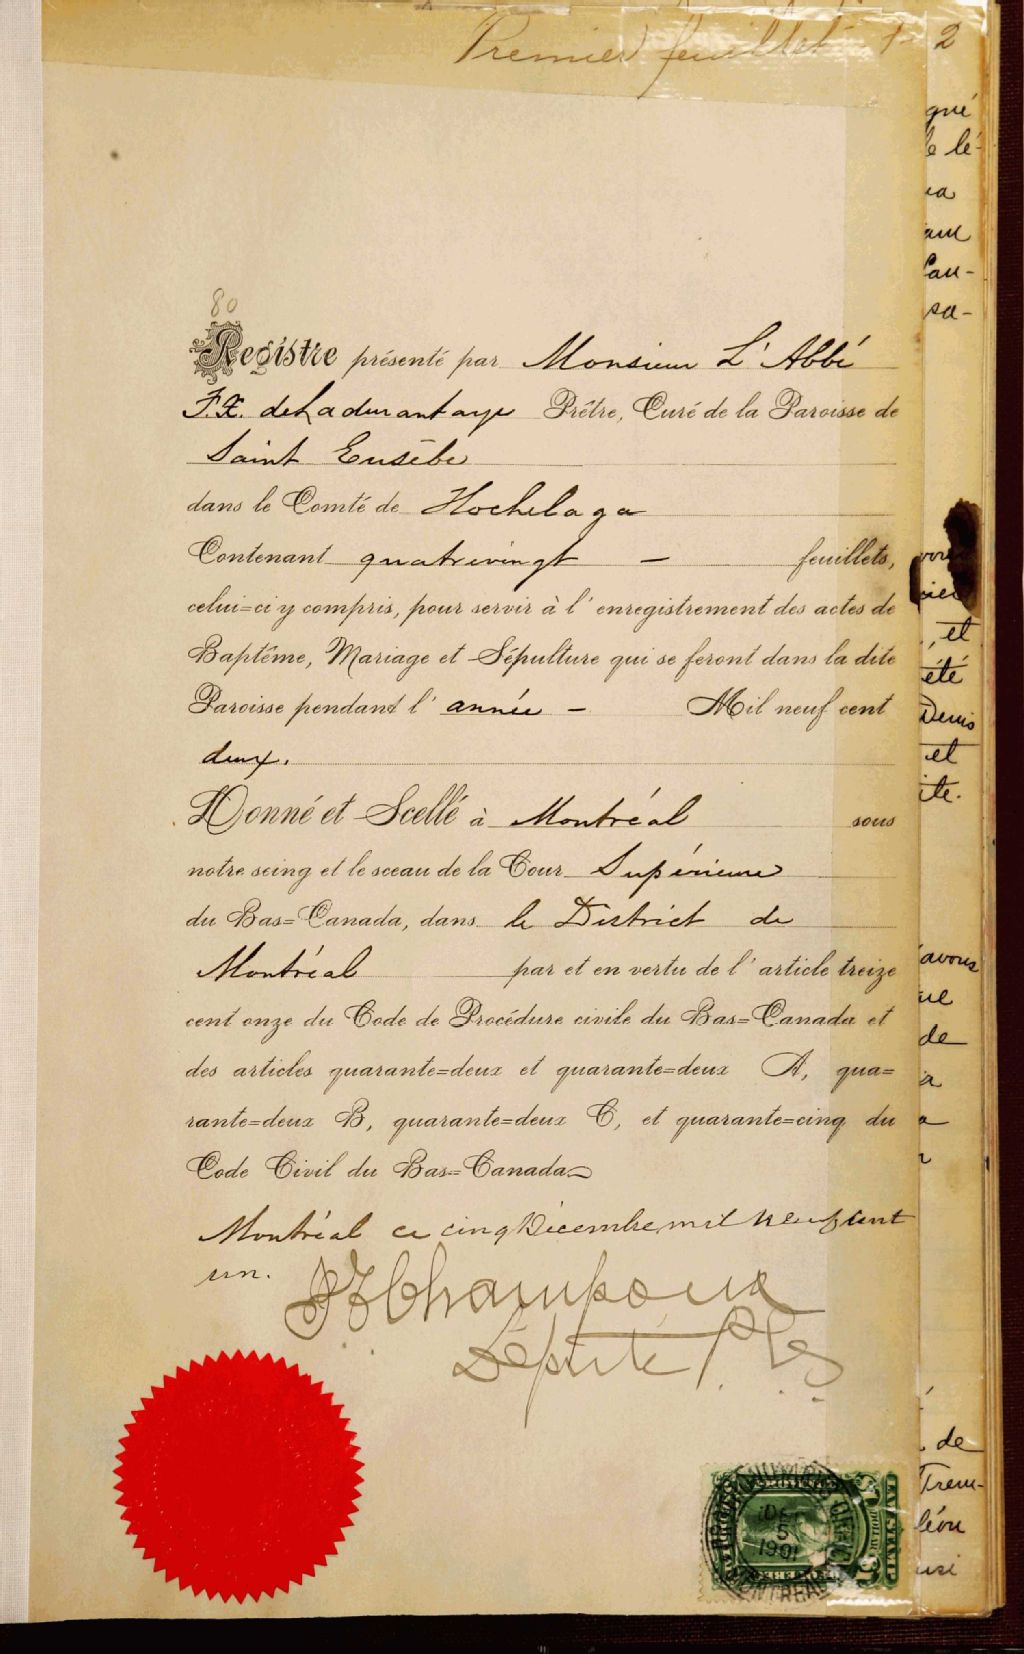 Premier feuillet 1- 2
80
Registre présenté par Monsieur L'Abbé
F.X. deLadurantaye Prêtre, Curé de la Paroisse de
Saint Eusèbe
dans le Comté de Hochelaga
Contenant quatrevingt — feuillets,
celui=ci y compris, pour servir à l'enregistrement des actes de
Baptême, Mariage et Sépulture qui se feront dans la dite
Paroisse pendant l'année — Mil neuf cent
deux.
Donné et Scellé à Montréal sous
notre seing et le sceau de la Cour Supérieure
du Bas=Canada, dans le District de
Montréal par et en vertu de l'article treize
cent onze du Code de Procédure civile du Bas=Canada et
des articles quarante=deux et quarante=deux A, qua=
rante=deux B, quarante=deux C, et quarante=cinq du
Code Civil du Bas=Canada
Montréal ce cinq Décembre mil neuf cent
un.
Champoux
Député P.
DE
5
1901
MONTREAL
LAW STAMP
DOLLAR
gué
le lé-
am
Cau-
sa-
, et
été
Denis
et
ite.
avons
ue
de
a
de
Trem-
léon